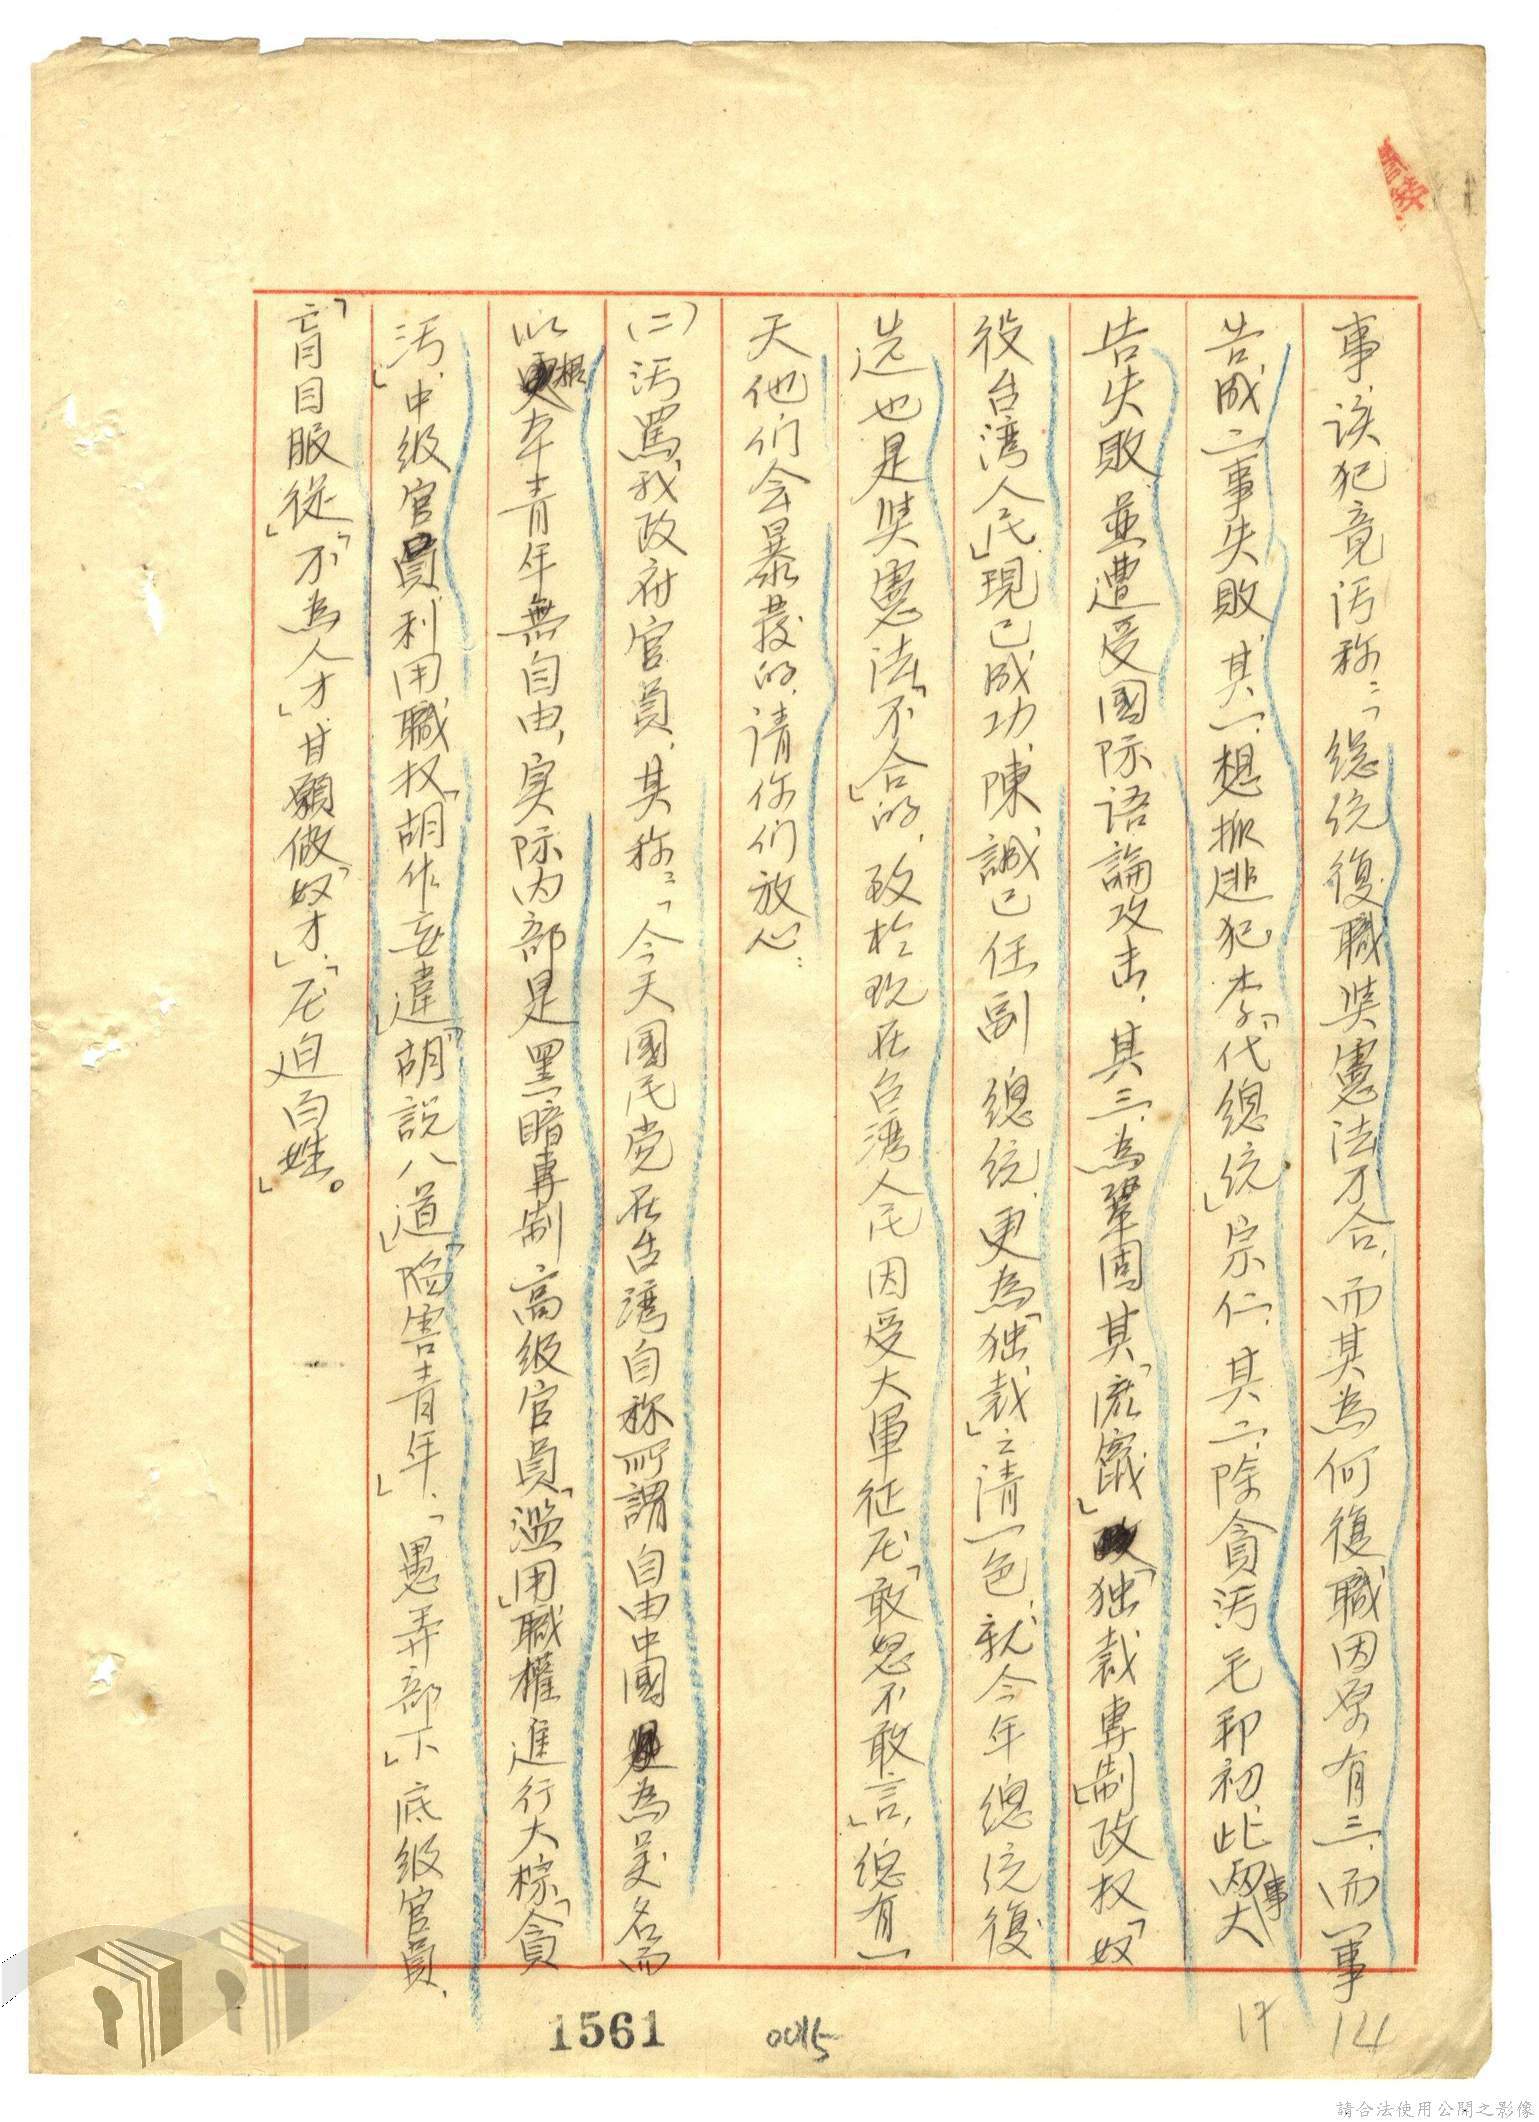 事,该犯竟污称:「総统復職與憲法不合,而其為何復職因原有三,而一事
告成,二事失敗,其一,想报逃犯李「代總统」宗仁,其二,除貪污毛邦初,此兩大事
告失敗,並遭受國际语論攻击,其三,為鞏固其「流寇」「独裁專制」政权「奴
役台湾人民」現已成功,陳誠已任副總统,更為「独裁」之清一色,就今年總统復
选也是與憲法「不合」的,致於现在台湾人民因受大軍征压「敢怒不敢言」,總有一
天他们会暴發的,请你们放心:
(二)污罵我政府官員,其称:「今天國民党在台湾自称所謂自由中國為美名而
以根本青年無自由,实际内部是黑暗專制高级官員「滥用」職權進行大棕「貪
污」,中级官員利用職权「胡作妄違」「胡説八道」「陷害青年」,「愚弄部下」底级官員,
「盲目服從」「不為人才」甘願做「奴才」,「压迫百姓」。
1561
0015
17
14
請合法使用公開之影像